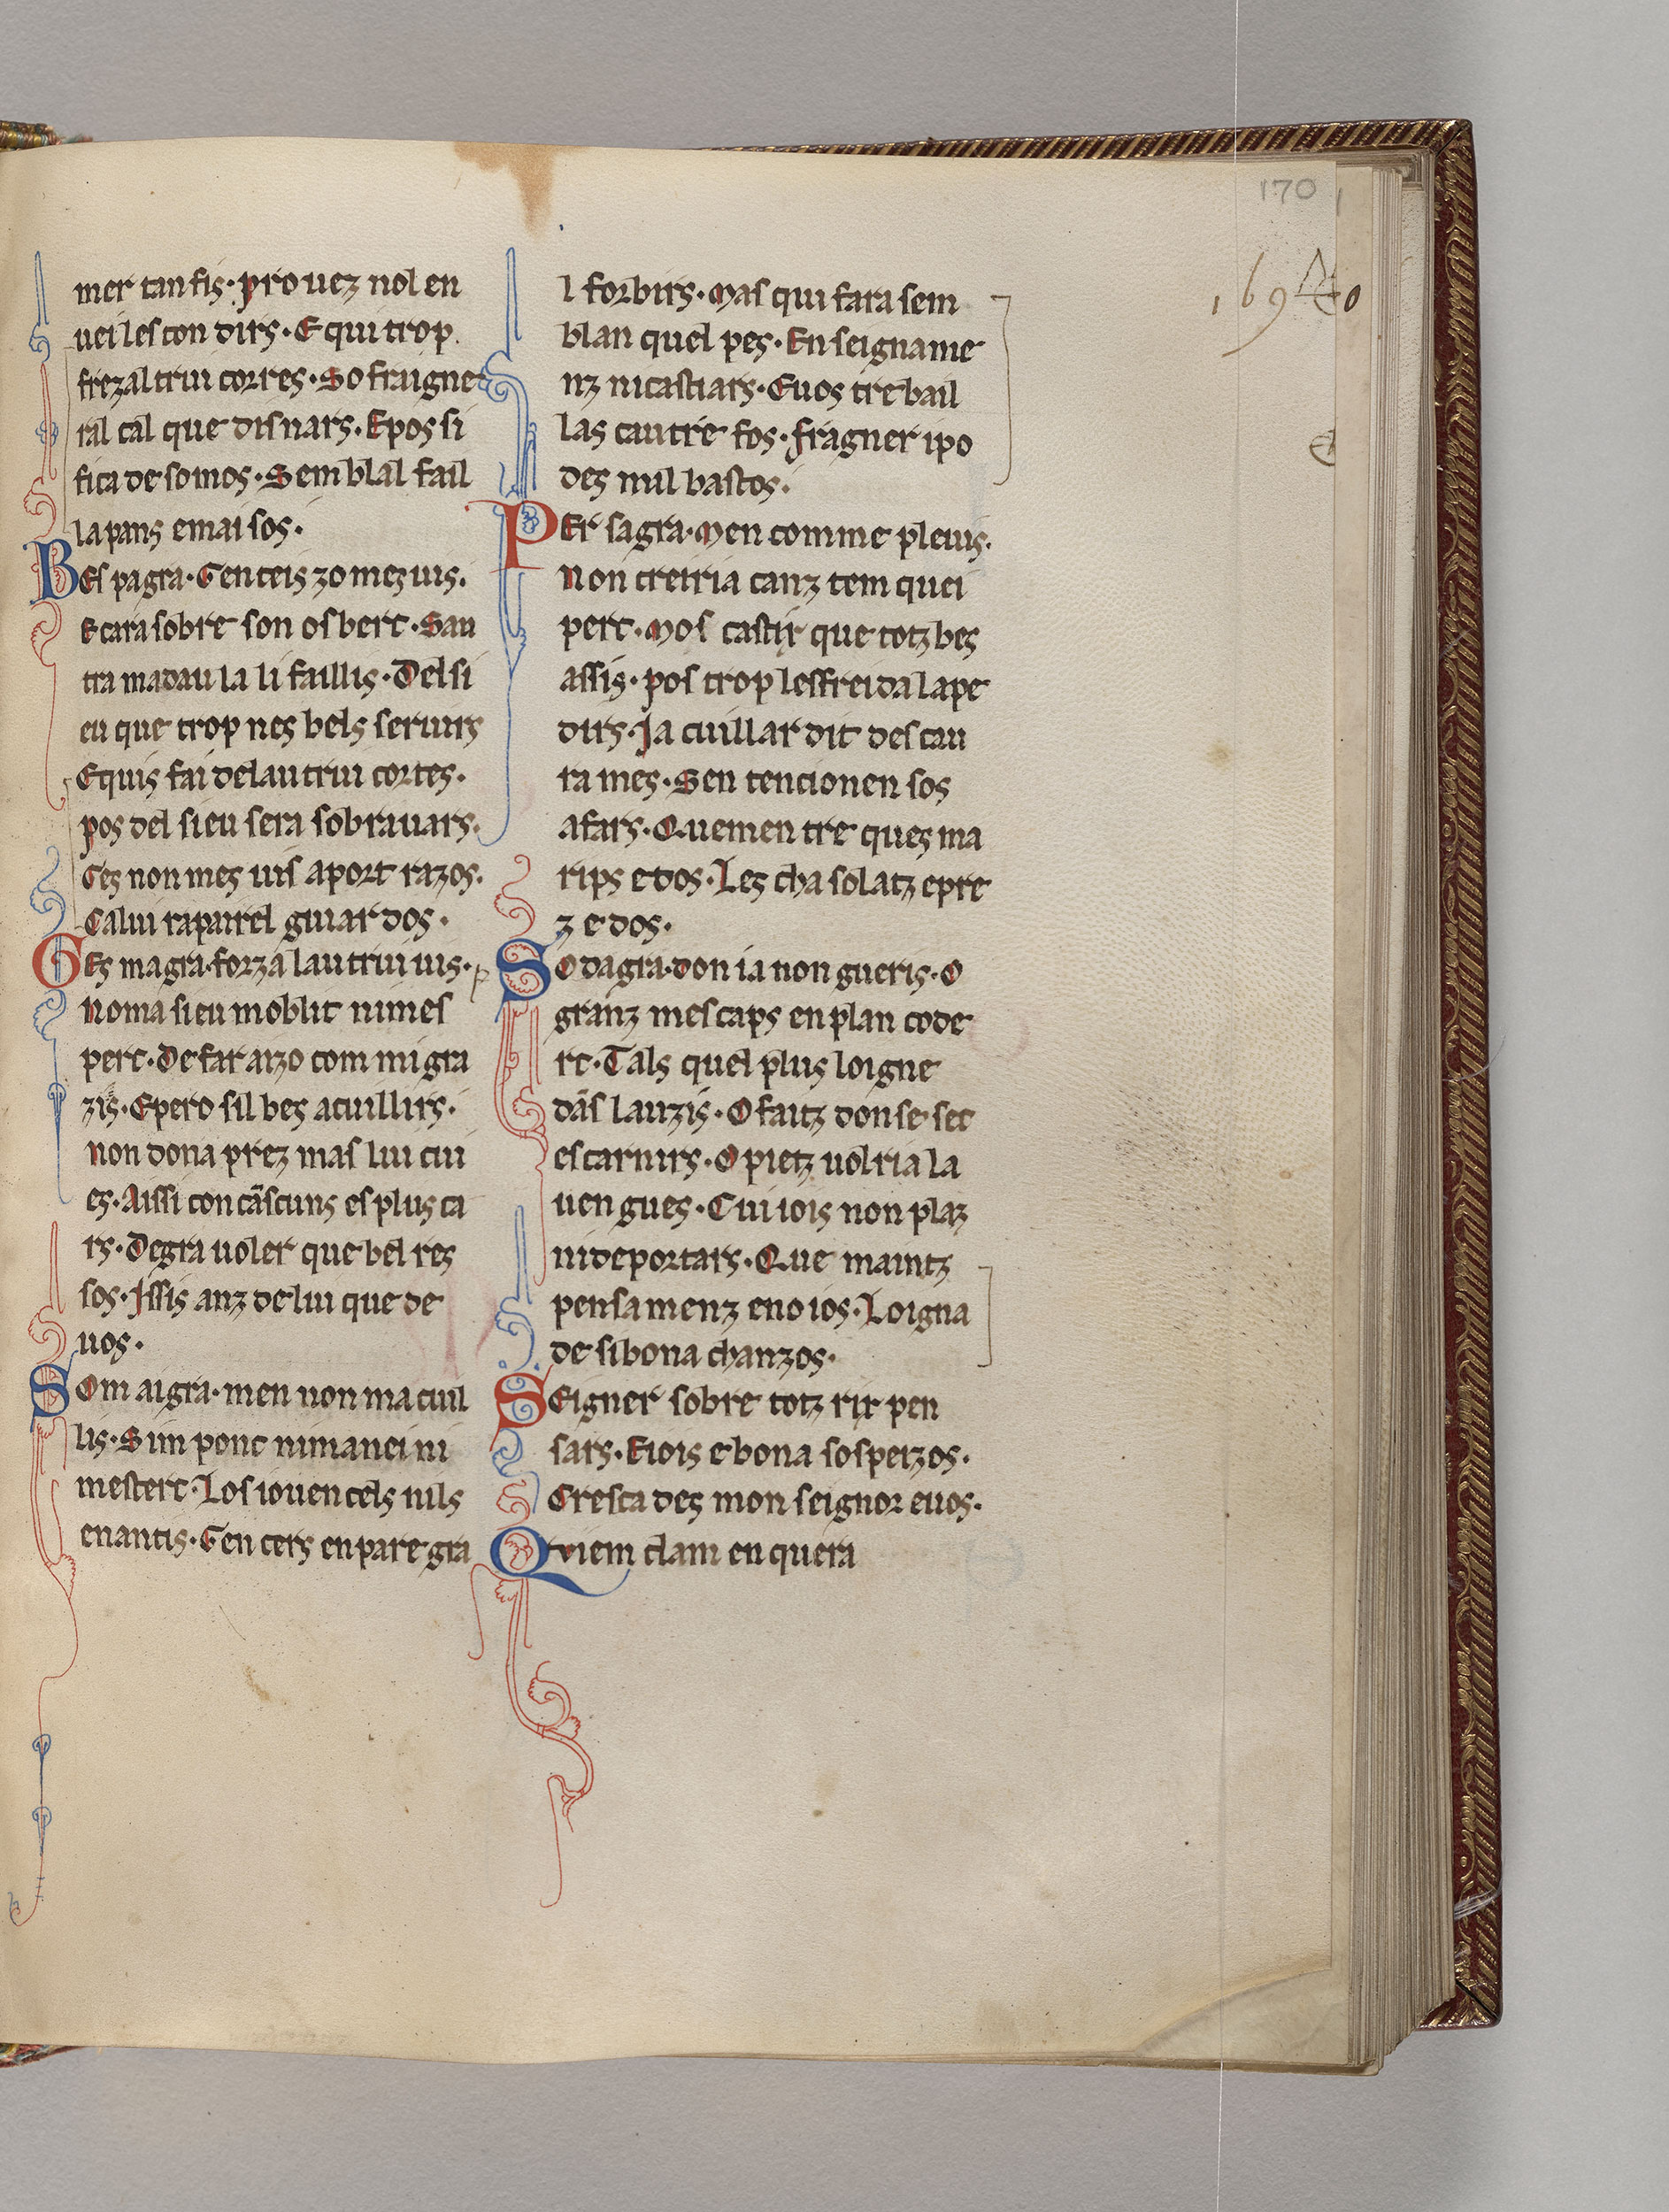 170
169
mer tan fis · pro uez nol en
uei les con dirs · E qui trop
frezal trui corres · So fraigne
ral cal que disnars · E pos si
fica de somos · Sem blal fail
la pans e mai sos ·
BEs pagra · Gen ceis zo mes uis ·
E cara sobre son osberc · Sau
tra madau la li faillis · Del si
eu que trop nes bels seruirs
E quis fai del au trui cortes ·
pos del sieu sera sobrauars ·
Ges non mes uis aport razos ·
Calui raparel guiardos ·
GEs magra · forza lau trui uis ·
Noma sieu moblit nimes
perc · De far aizo com mi gra
zis · E pero sil bes acuillirs ·
non dona prez mas lui cui
es · Aissi con cãscuns es plus ca
rs · Degra uoler que bel res
sos · Issis anz de lui que de
uos ·
SOm aigra · men uon ma cuil
lis · Sim ponc nimanei ni
mesterc · Los iouencels nils
enantis · Gen cers en pare gra
l forbirs · Mas qui fara sem
blan quel pes · En seigname
nz nicastiars · E uos tre bail
las cautre fos · fragner ipo
des mil bastos ·
PEr sagra · Men com me pleuis ·
Non creiria canz tem quei
perc · Mos castir que totz bes
assis · pos trop lesfrei da lape
dirs · Ja cuillar dit des cau
ra mes · Sen tencionen sos
afars · Quemen tre ques ma
rips e dos · Les cha solatz e pre
z e dos ·
SO dagra · don ia non gueris · O
granz mescaps en plan code
rc · Tals quel plus loigne
dãs lauzis · O faitz don se sec
escarnirs · O pietz uolria la
uen gues · Cui iois non plaz
ni deportars · Que maintz
pensamenz enoios · Loigna
de si bona chanzos ·
SEigner sobre totz rir pen
sars · E iois e bona sospeizos ·
Cresca des mon seignor e uos ·
QViem clam en quera